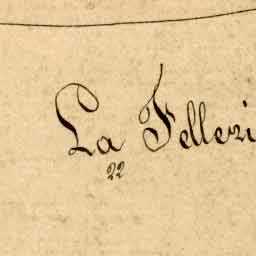 La Felleri
22